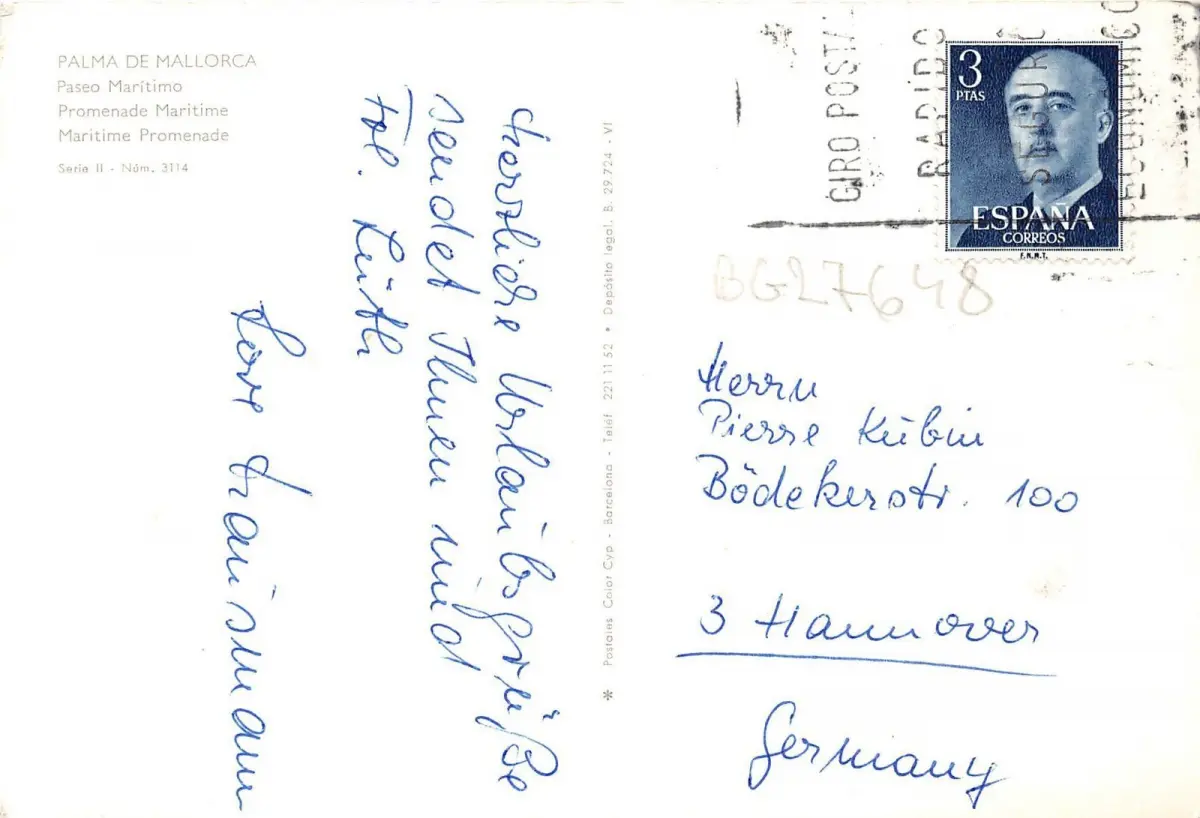 PALMA DE MALLORCA
Paseo Marítimo
Promenade Maritime
Maritime Promenade
Serie II - Núm. 3114
Herzliche Urlaubsgrüße
sendet Ihnen und
Frl. Lüth
Postales Color Cyp - Barcelona - Teléf 221 11 52 • Depósito legal, B. 29.724 - VI
GIRO POSTA
RAPIDO
SEGURO
ECONOMICO
3
PTAS
ESPAÑA
CORREOS
F.N.M.T.
BG27648
Herrn
Pierre Kübin
Bödekerstr. 100
3 Hannover
Germany